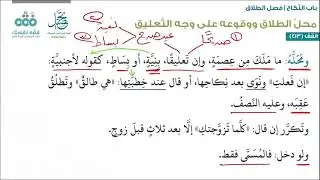 باب النكاح | فصل الطلاق
محل الطلاق ووقوعه على وجه التعليق
الفقرة (٤١٣)
محمد
فقه نفسك
١ صريحًا
غير صريح
نية
بساط
ومَحَلُّه: ما مَلَكَ مِن عِصمةٍ، وإن تَعليقًا، بِنِيَّةٍ أو بِساطٍ، كقوله لأجنبيَّةٍ:
«إن فَعلتِ» ونَوَى بعد نِكاحِها، أو قال عند خِطْبَتِها: «هي طالقٌ» وتَطلُقُ
عَقِبَه، وعليه النِّصفُ.
وتَكرَّر إن قال: «كلَّما تزوَّجتكِ» إلَّا بعد ثلاثٍ قبل زوجٍ.
ولو دخل: فالمُسمَّى فقط.